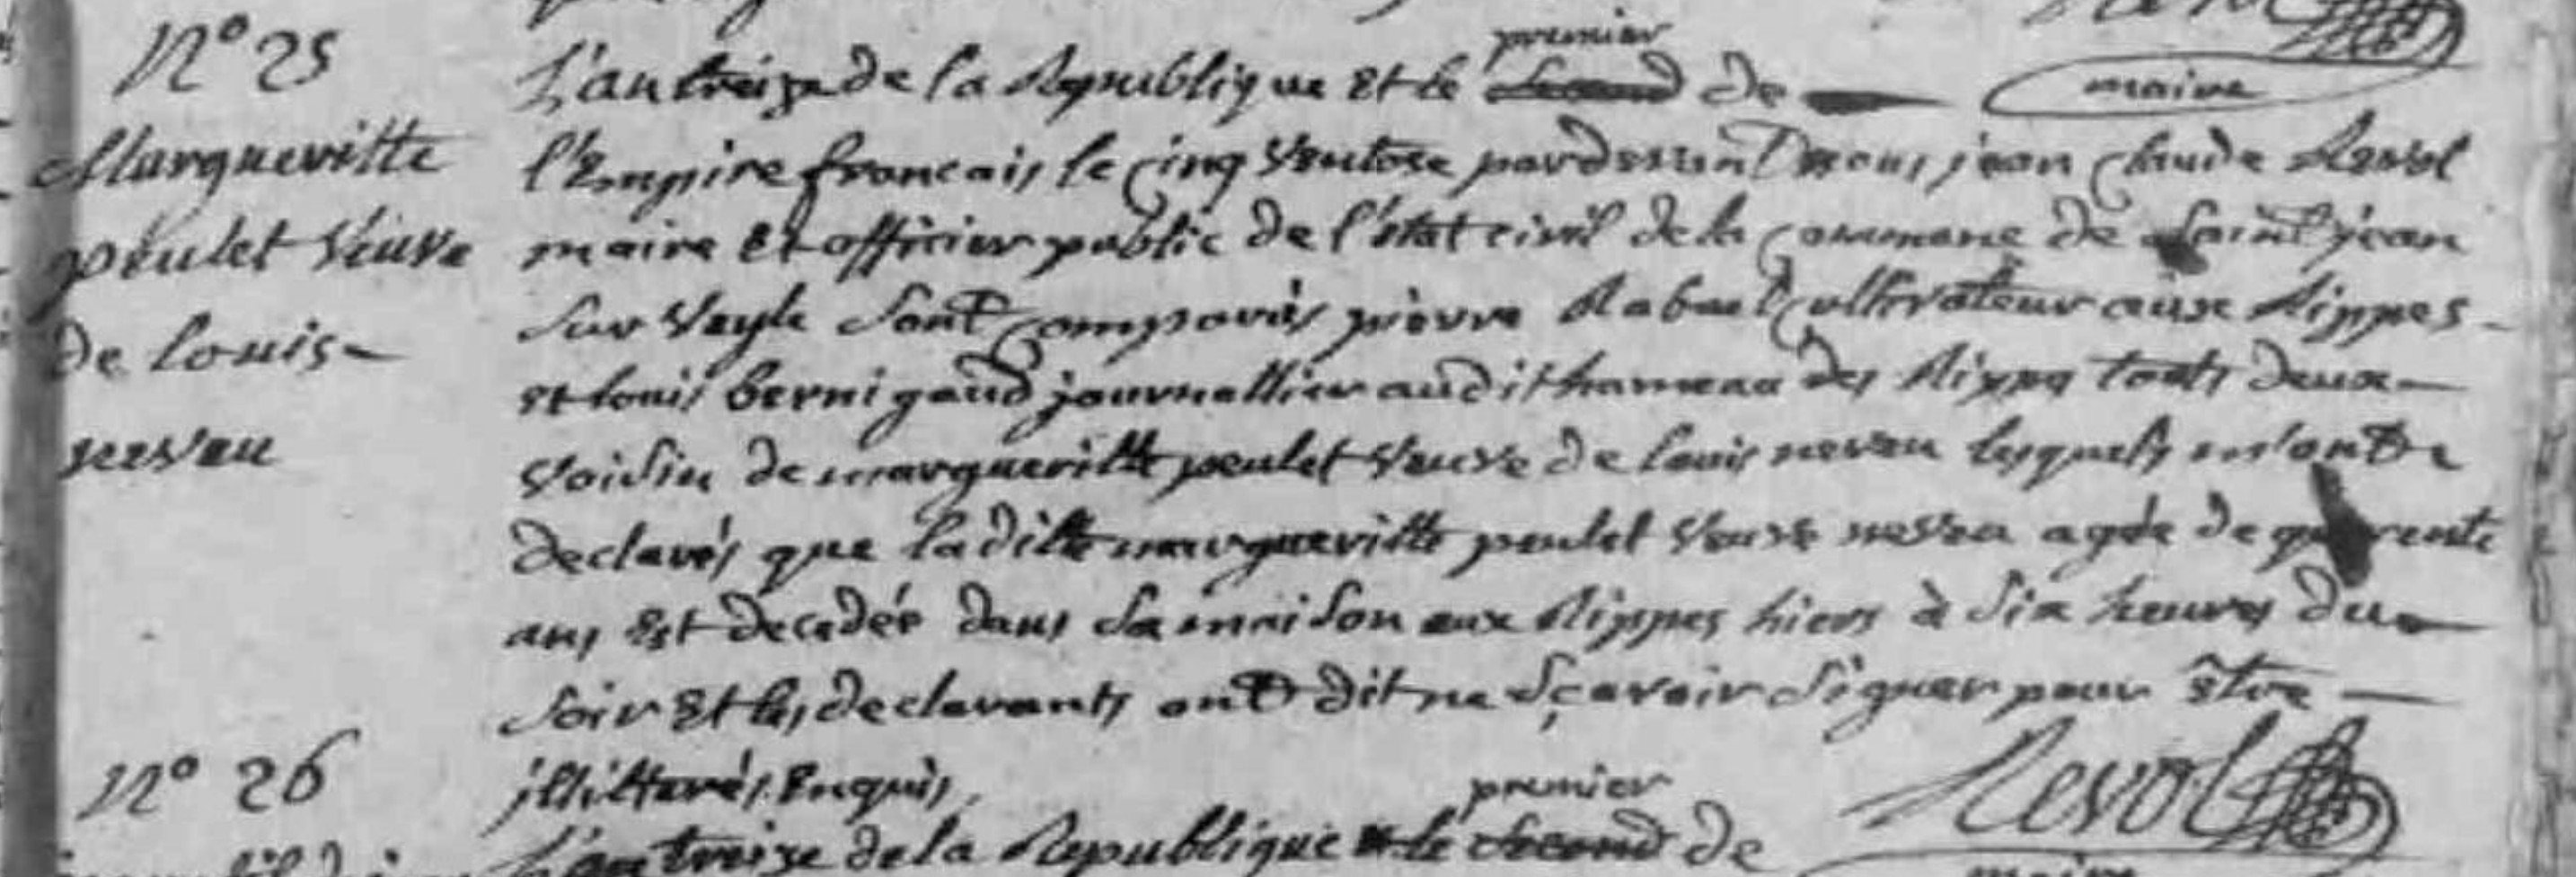 N° 25
Margueritte
peulet veuve
de louis
neveu
premier
L'an treize de la Republique et le second de
maire
l'Empire francais le cinq ventose pardevant nous jean claude Revol
maire et officier public de l'état civil de la commune de saint jean
sur veyle sont comparùs pierre Rabuel cultivateur aux Rippes
et louis bernigaud journallier audit hameau des Rippes touts deux
voisin de margueritte peulet veuve de louis neveu lesquels m'ont
declarés que laditte margueritte peulet veuve neveu agée de quarente
ans est decedée dans sa maison aux Rippes hiers à six heures du
soir et les declarants ont dit ne sçavoir signer pour être
illitterés enquis,
Revol
N° 26
premier
L'an treize de la Republique et le second de
maire